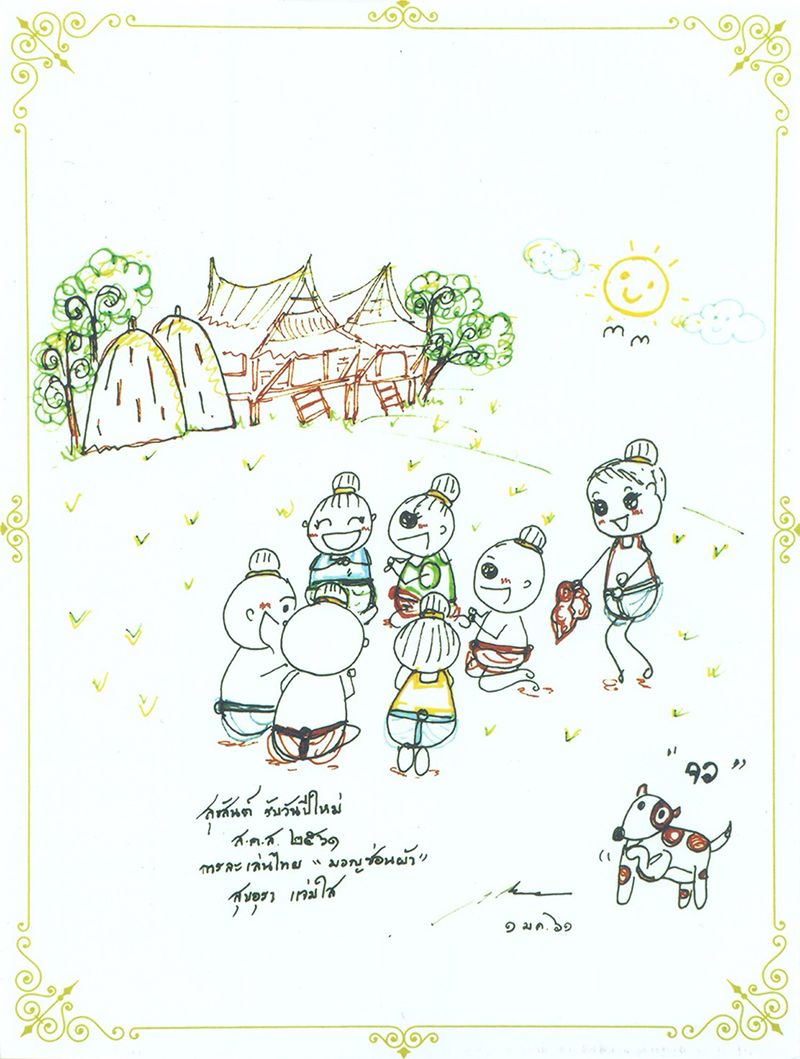 "จอ"
สุขสันต์ รับวันปีใหม่
ส.ค.ส. ๒๕๖๑
การละเล่นไทย "มอญซ่อนผ้า"
สุขอุรา แจ่มใส
๑ ม.ค. ๖๑